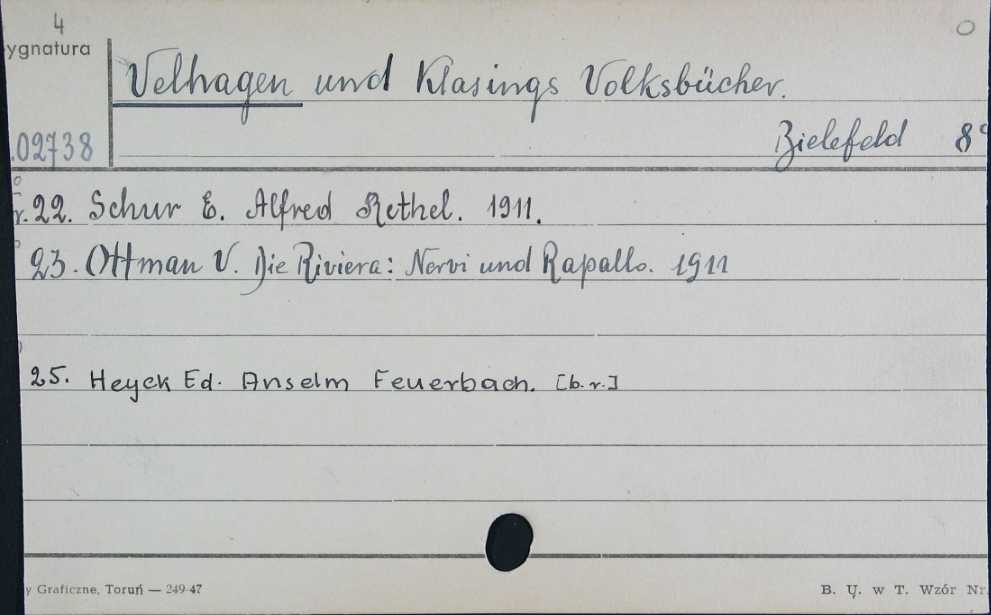 4
ygnatura
Velhagen und Klasings Volksbücher.
02738
Bielefeld 8°
r. 22. Schur E. Alfred Rethel. 1911.
23. Ottman V. Die Riviera: Nervi und Rapallo. 1911
25. Heyck Ed. Anselm Feuerbach. [b.r.]
y Graficzne, Toruń — 249-47
B. U. w T. Wzór Nr.